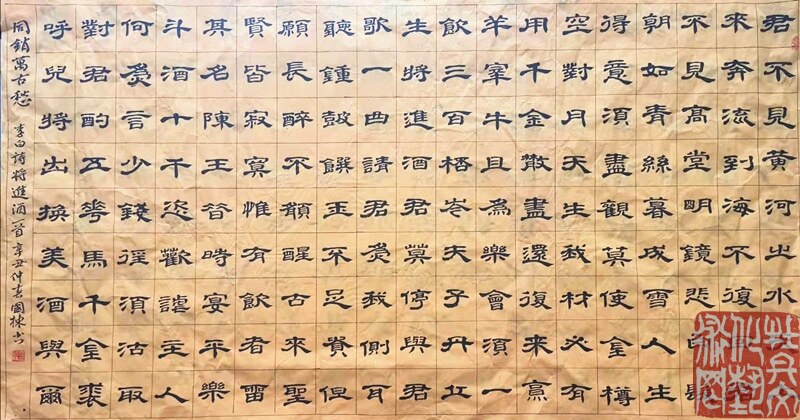 君不見黃河之水
來奔流到海不復
不見高堂明鏡悲
朝如青絲暮成雪人生
得意須盡觀莫使金樽
空對月天生我材必有
用千金散盡還復來烹
羊宰牛且為樂會須一
飲三百桮岑夫子丹丘
生將進酒君莫停與君
歌一曲請君為我側耳
聽鍾鼓饌玉不足貴但
願長醉不願醒古來聖
賢皆寂寞惟有飲者留
其名陳王昔時宴平樂
斗酒十千恣歡謔主人
何為言少錢徑須沽取
對君酌五花馬千金裘
呼兒將出換美酒與爾
同銷萬古愁 李白詩將進酒一首 辛丑仲春國棟書